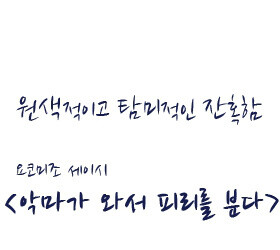 원색적이고 탐미적인 잔혹함
요코미조 세이시
<악마가 와서 피리를 분다>